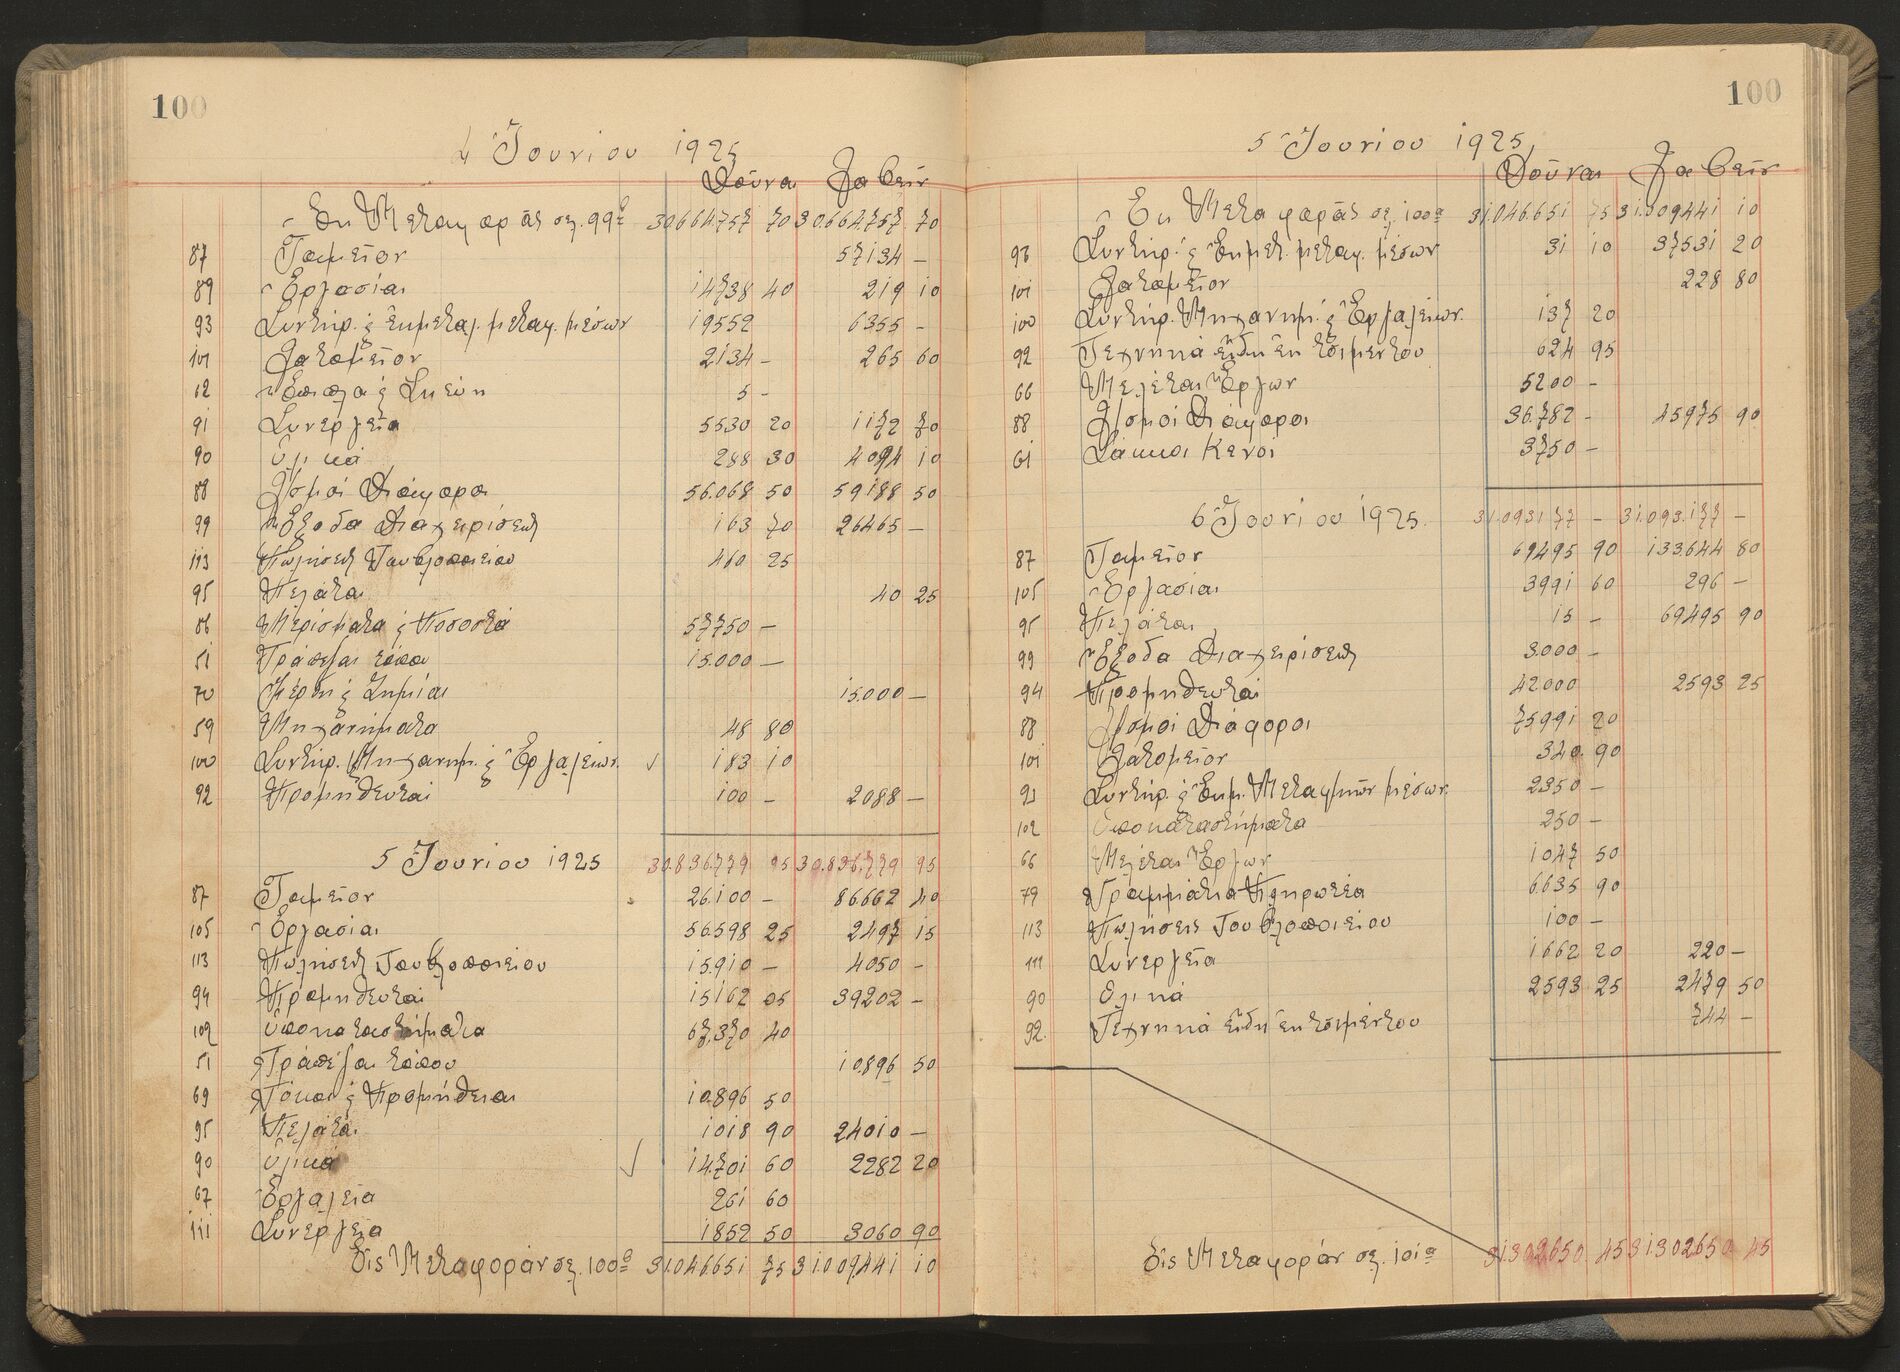 100
4 Ἰουνίου 1925
Δοῦναι Λαβεῖν
Ἐκ Μεταφορᾶς σελ. 99ης 30.664.757 70 30.664.757 70
87 Ταμεῖον 57134 —
89 Ἐργασίαι 14738 40 219 10
93 Συντήρ. & Ἐκμεταλ. μεταφ. μέσων 19552 6355 —
101 Λατομεῖον 2134 — 265 60
62 Ἔπιπλα & Σκεύη 5 —
91 Συνεργεῖα 5530 20 1172 70
90 Ὑλικά 288 30 4094 10
88 Λ/σμοί Διάφοροι 56.068 50 59188 50
99 Ἔξοδα Διαχειρίσεως 163 70 26465 —
113 Πωλήσεις Τουβλοποιείου 460 25
95 Πελάται 40 25
86 Μερίσματα & Ποσοστά 57750 —
51 Τράπεζαι τόπου 15.000 —
70 Κέρδη & Ζημίαι 15.000 —
59 Μηχανήματα 48 80
100 Συντήρ. Μηχανημ. & Ἐργαλείων. 183 10
92 Προμηθευταί 100 — 2088 —
5 Ἰουνίου 1925 30.836.779 95 30.836.779 95
87 Ταμεῖον 26.100 — 86662 40
105 Ἐργασίαι 56.598 25 2497 15
113 Πωλήσεις Τουβλοποιείου 15.910 — 4050 —
94 Προμηθευταί 15162 05 39202 —
102 Ὑποκαταστήματα 67.370 40
51 Τράπεζαι τόπου 10.896 50
69 Τόκοι & Προμήθειαι 10.896 50
95 Πελάται 1018 90 24010 —
90 Ὑλικά 14.701 60 2282 20
67 Ἐργαλεῖα 261 60
111 Συνεργεῖα 1852 50 3060 90
Εἰς Μεταφοράν σελ. 100α 31.046.651 75 31.009.441 10
100
5 Ἰουνίου 1925
Δοῦναι Λαβεῖν
Ἐκ Μεταφορᾶς σελ. 100α 31.046.651 75 31.009441 10
93 Συντήρ. & Ἐκμετ. μεταφ. μέσων 31 10 37531 20
101 Λατομεῖον 228 80
100 Συντήρ. Μηχανημ. & Ἐργαλείων. 137 20
92 Τεχνηκά εἴδη ἐκ τσιμέντου 624 95
66 Μελέται Ἔργων 5200 —
88 Λ/σμοί Διάφοροι 36.782 — 45975 90
61 Σάκκοι Κενοί 3750 —
6 Ἰουνίου 1925. 31.093177 — 31.093.177 —
87 Ταμεῖον 69495 90 133.644 80
105 Ἐργασίαι 3991 60 296 —
95 Πελάται 15 — 69495 90
99 Ἔξοδα Διαχειρίσεως 3.000 —
94 Προμηθευταί 42000 2593 25
88 Λ/σμοί Διάφοροι 75991 20
101 Λατομεῖον 340. 90
93 Συντήρ. & Ἐκμ. Μεταφικῶν μέσων. 2350 —
102 Ὑποκαταστήματα 250 —
66 Μελέται Ἔργων 1047 50
79 Γραμμάτια Πληρωτέα 6635 90
113 Πωλήσεις Τουβλοποιείου 100 —
111 Συνεργεῖα 1662 20 220 —
90 Ὑλικά 2593 25 2479 50
92. Τεχνηκά εἴδη ἐκ τσιμέντου 744 —
Εἰς Μεταφοράν σελ. 101α 31302650. 45 31302650 45